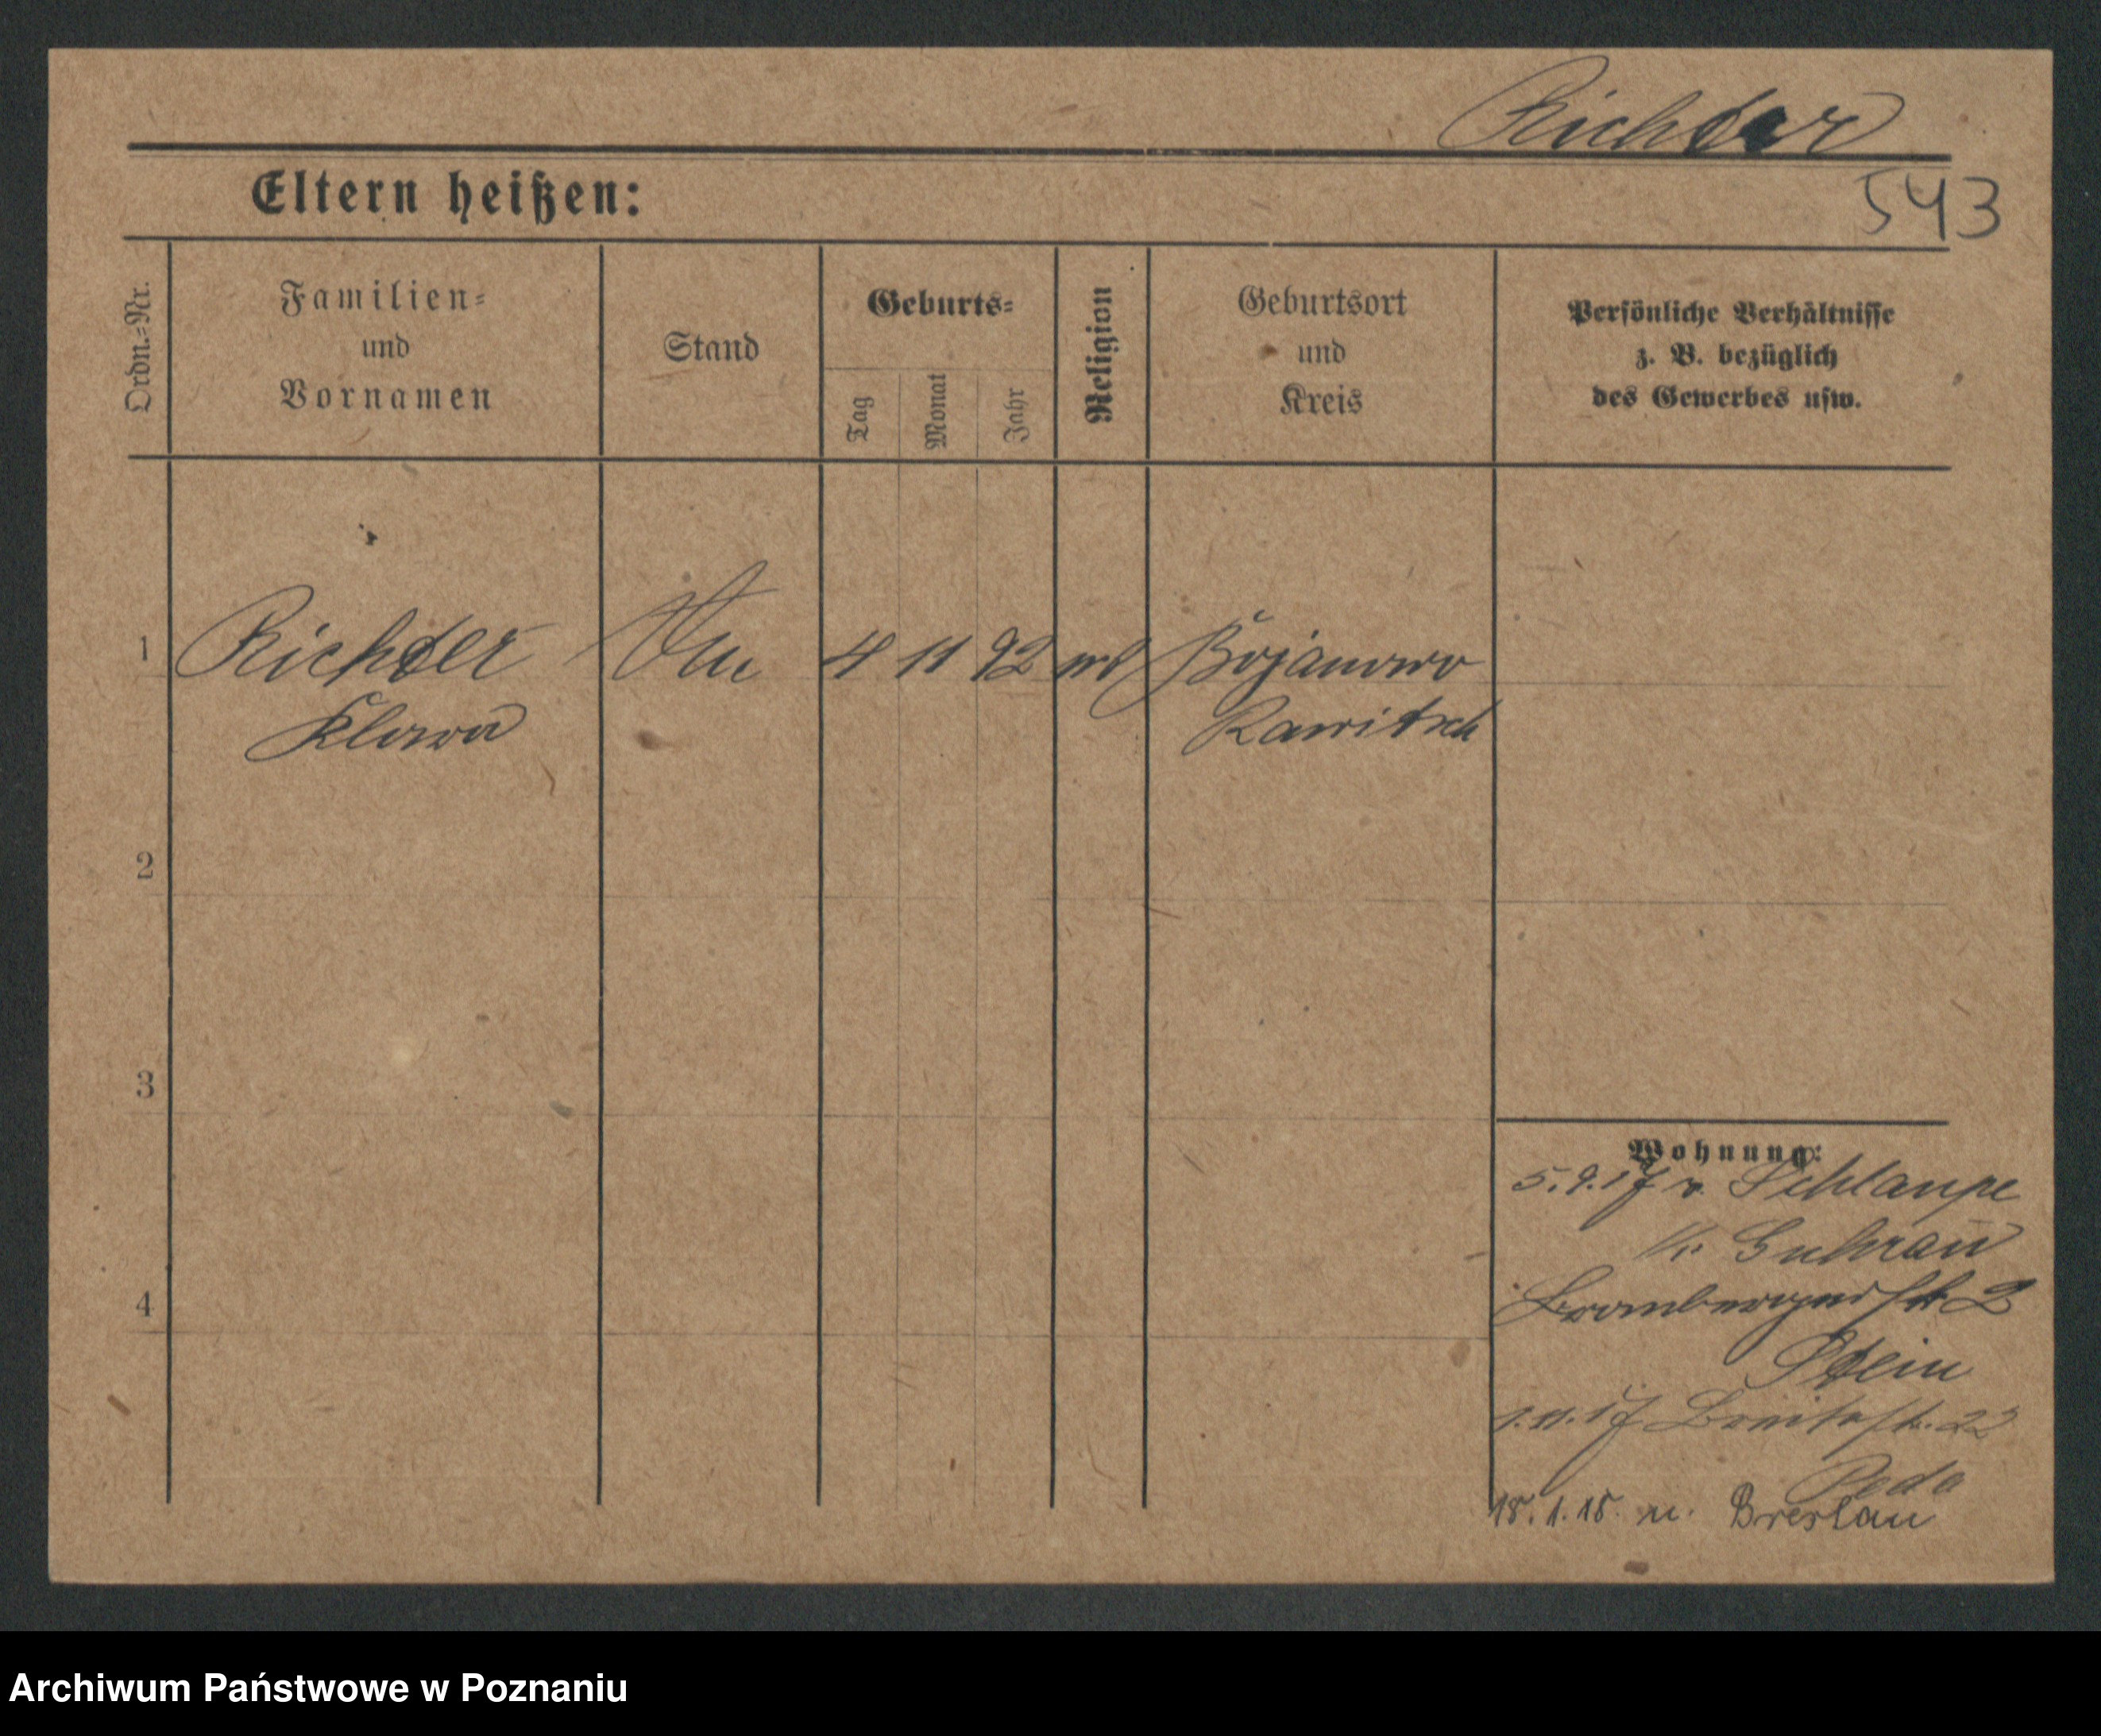 Richter
Eltern heißen:
543
Ordn.=Nr.
Familien=
und
Vornamen
Stand
Geburts=
Tag
Monat
Jahr
Religion
Geburtsort
und
Kreis
Persönliche Verhältnisse
z. B. bezüglich
des Gewerbes usw.
1 Richter 4 11 92 Bojanowo
Klara Rawitsch
2
3
4
Wohnung:
5.9.17 v. Schlaupe
Kr. Guhrau
Brombergerstr 2
Stein
1.11.17 Breitestr. 22
18.1.18. n. Breslau
Archiwum Państwowe w Poznaniu